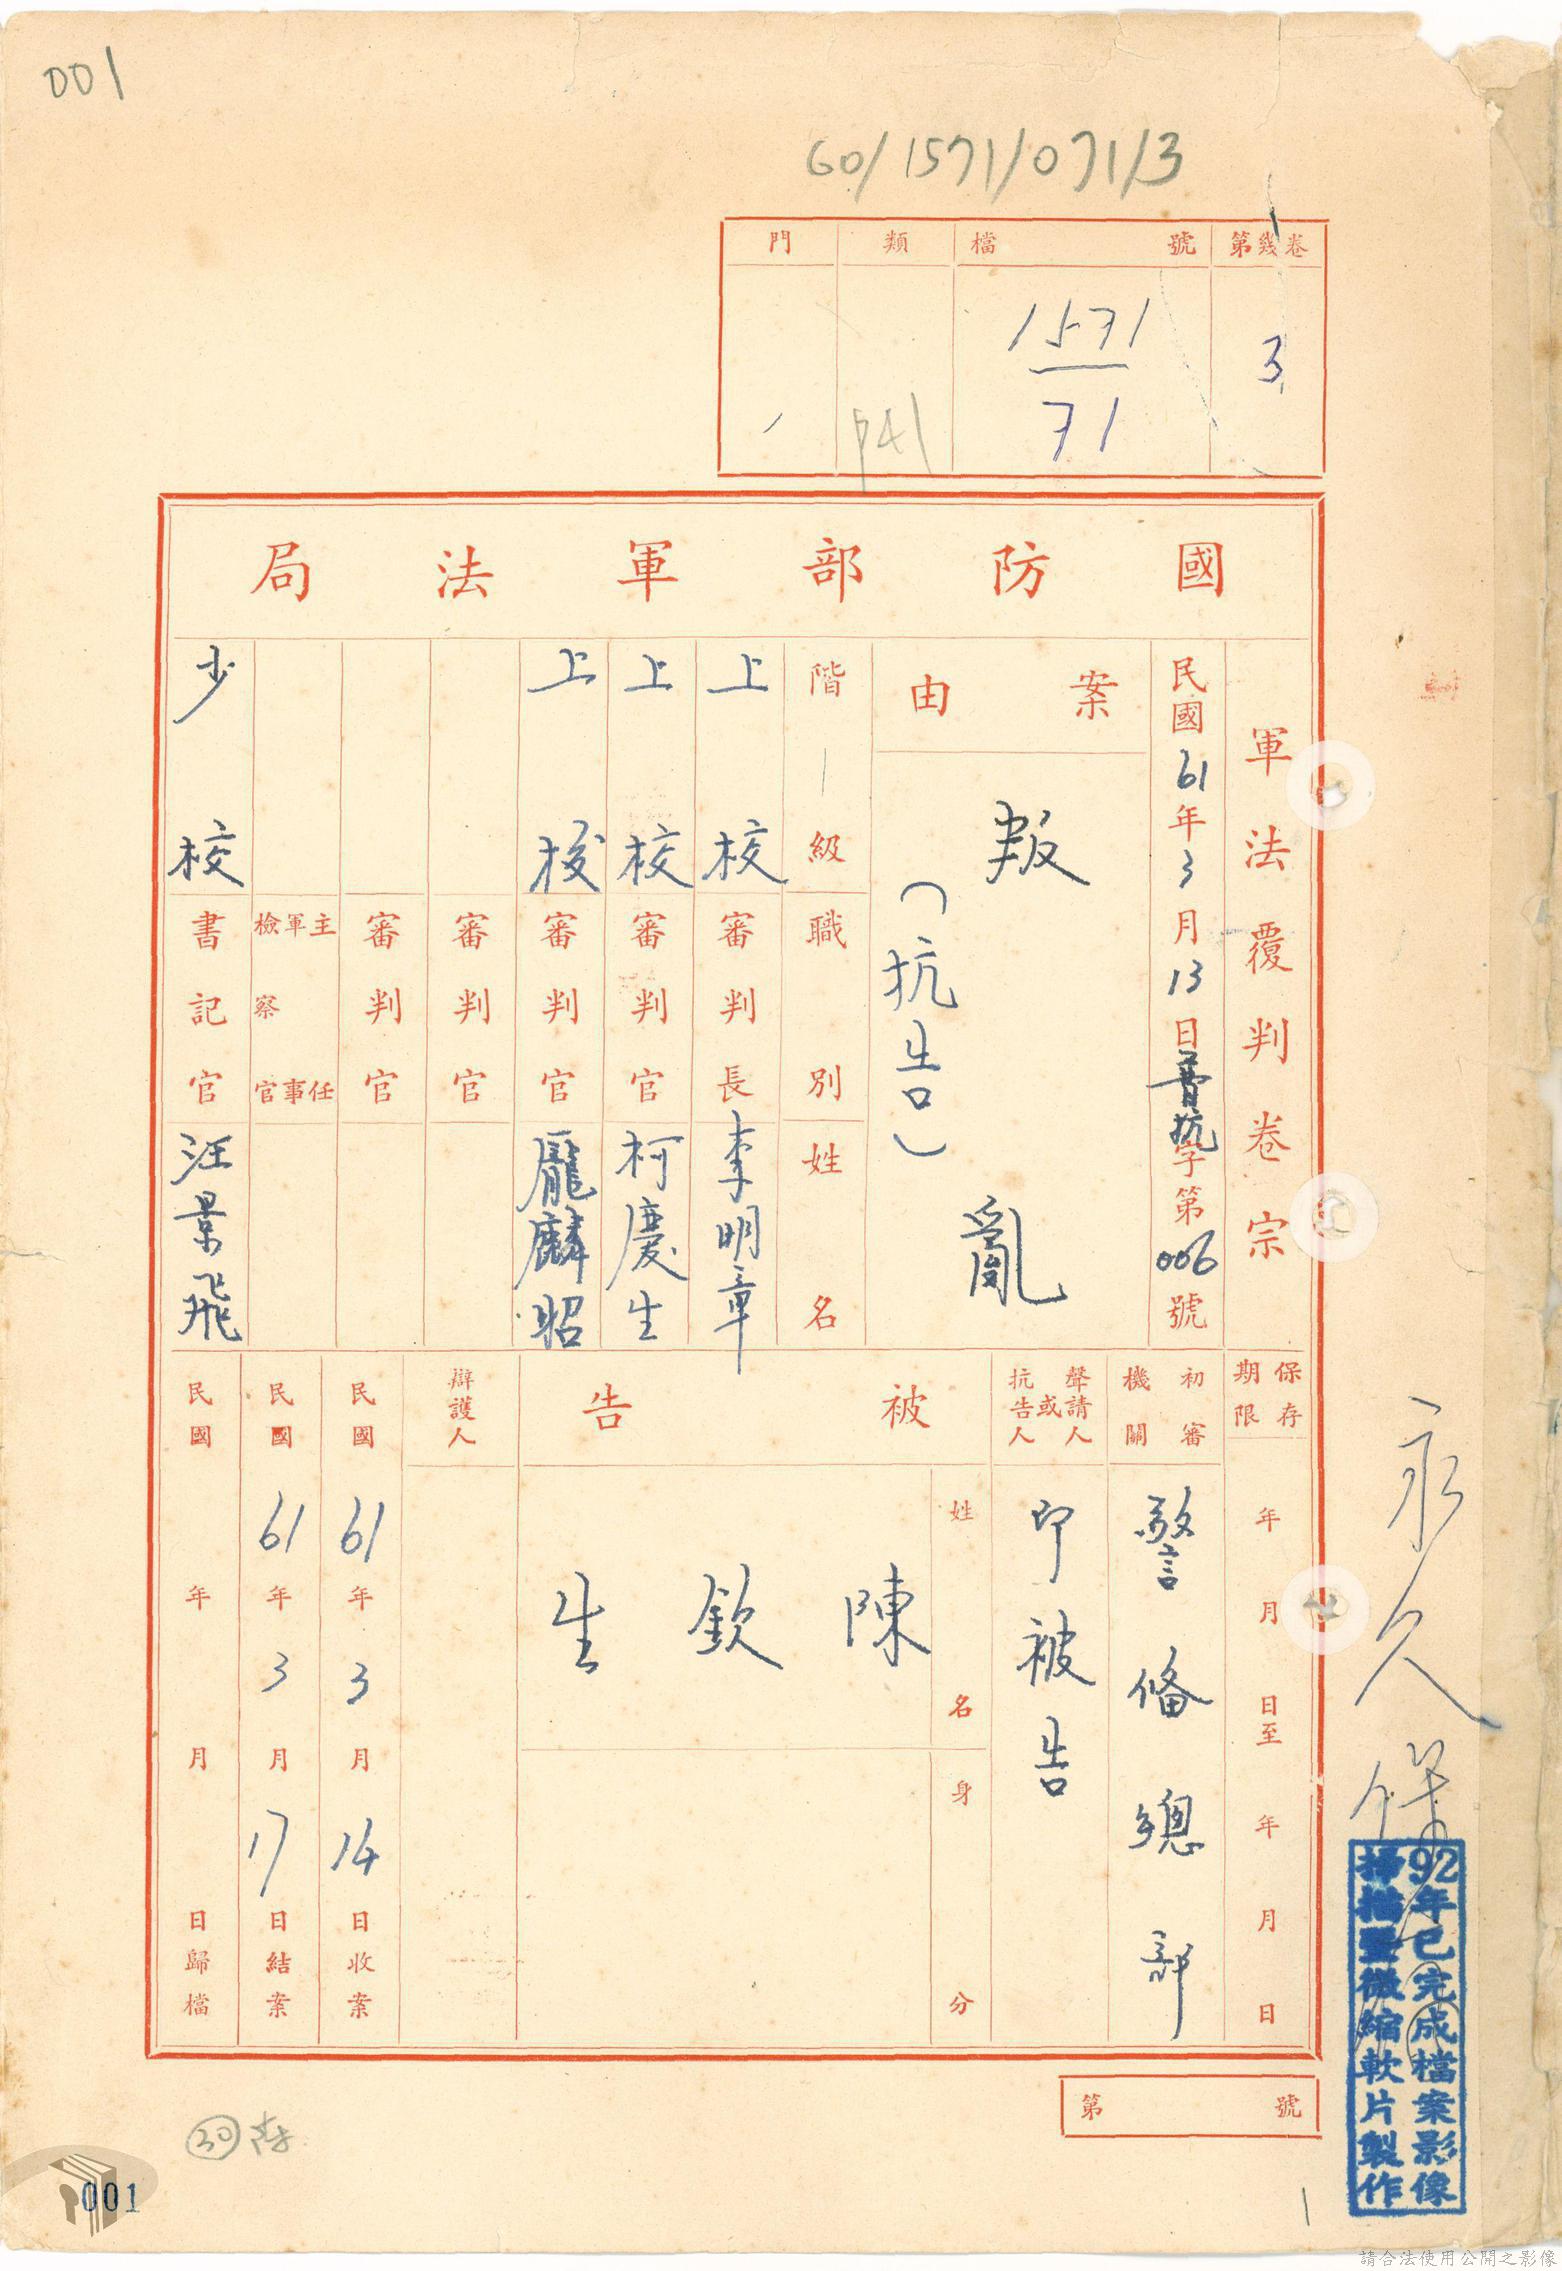 001
60/1571/071/3
第幾卷
3
檔號
1571
71
類
P41
門
國防部軍法局
軍法覆判卷宗
民國61年3月13日普抗字第006號
案由
叛亂
（抗告）
階級
職別
姓名
上校
審判長
李明章
上校
審判官
柯慶生
上校
審判官
龐麟昭
審判官
審判官
主任軍事檢察官
少校
書記官
汪景飛
保存期限
年月日至年月日
初審機關
警備總部
聲請人或抗告人
即被告
被告
姓名
陳欽生
身分
辯護人
民國61年3月14日收案
民國61年3月17日結案
民國年月日歸檔
第號
永久保
92年已完成檔案影像
掃描暨微縮軟片製作
30
001
請合法使用公開之影像